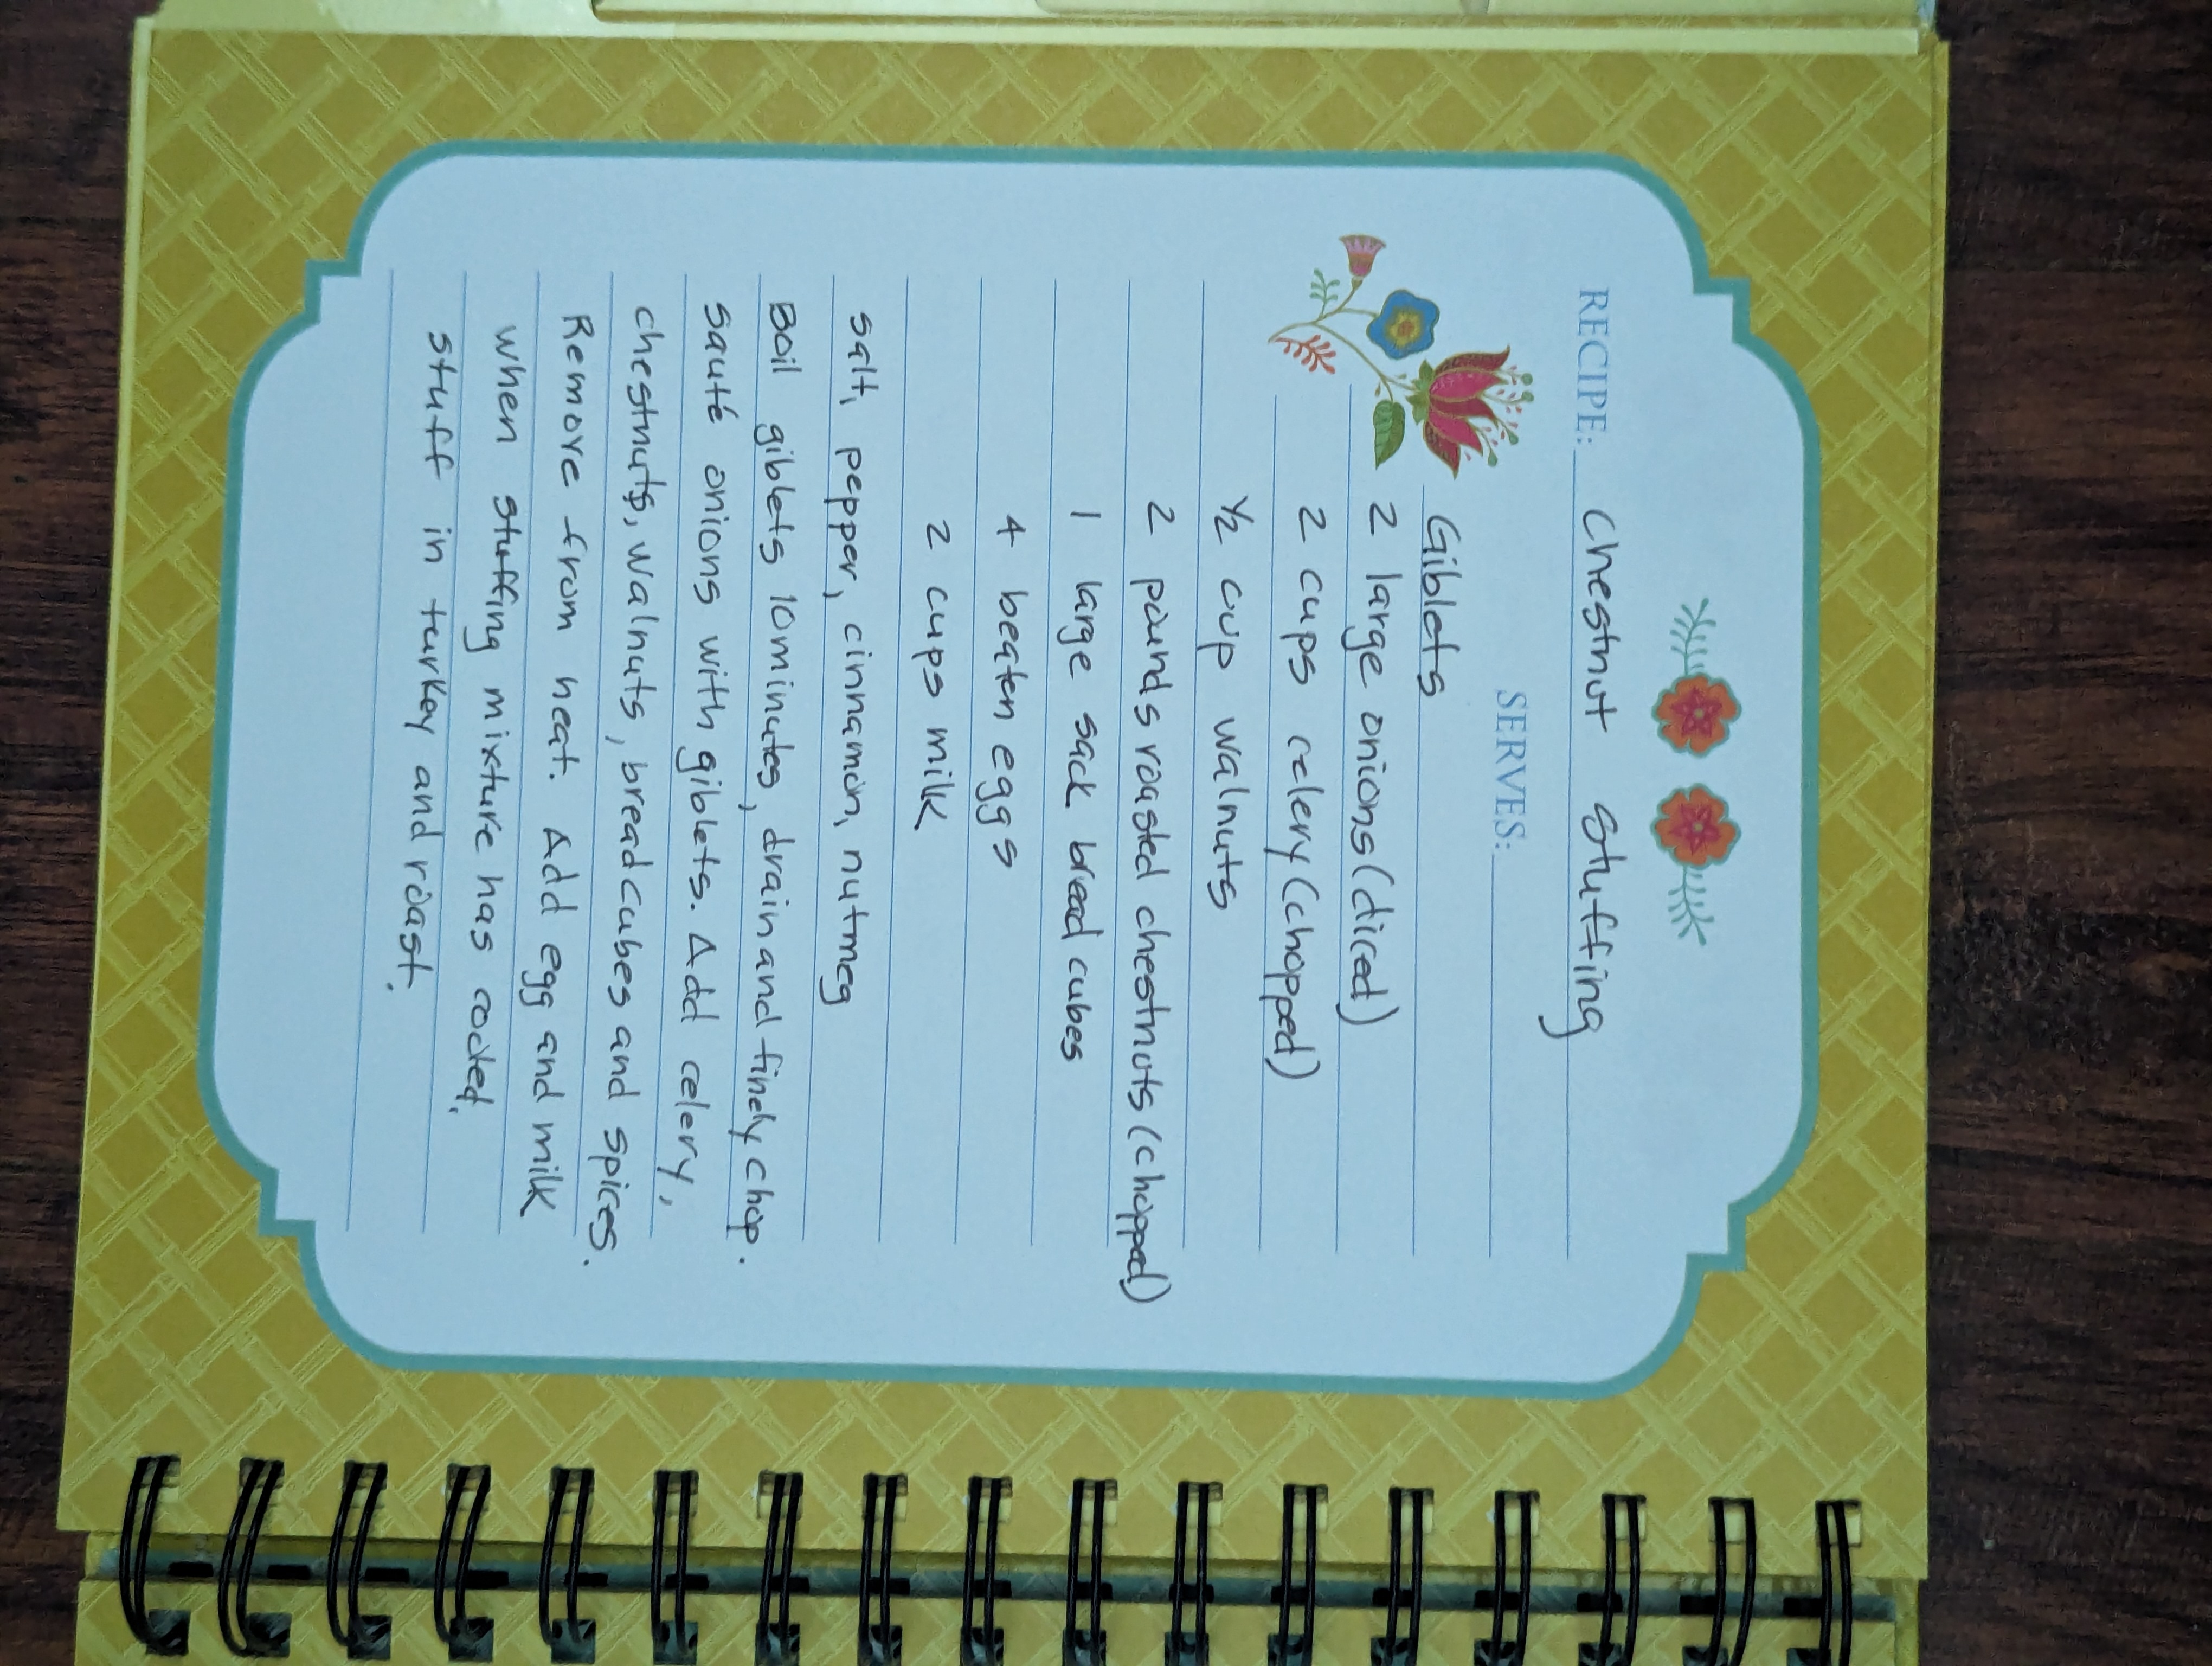 RECIPE: Chestnut Stuffing
SERVES:
Giblets
2 large onions (diced)
2 cups celery (chopped)
1/2 cup walnuts
2 pounds roasted chestnuts (chopped)
1 large sack bread cubes
4 beaten eggs
2 cups milk
salt, pepper, cinnamon, nutmeg
Boil giblets 10 minutes, drain and finely chop.
Sauté onions with giblets. Add celery,
chestnuts, walnuts, bread cubes and spices.
Remove from heat. Add egg and milk
when stuffing mixture has cooled.
Stuff in turkey and roast.